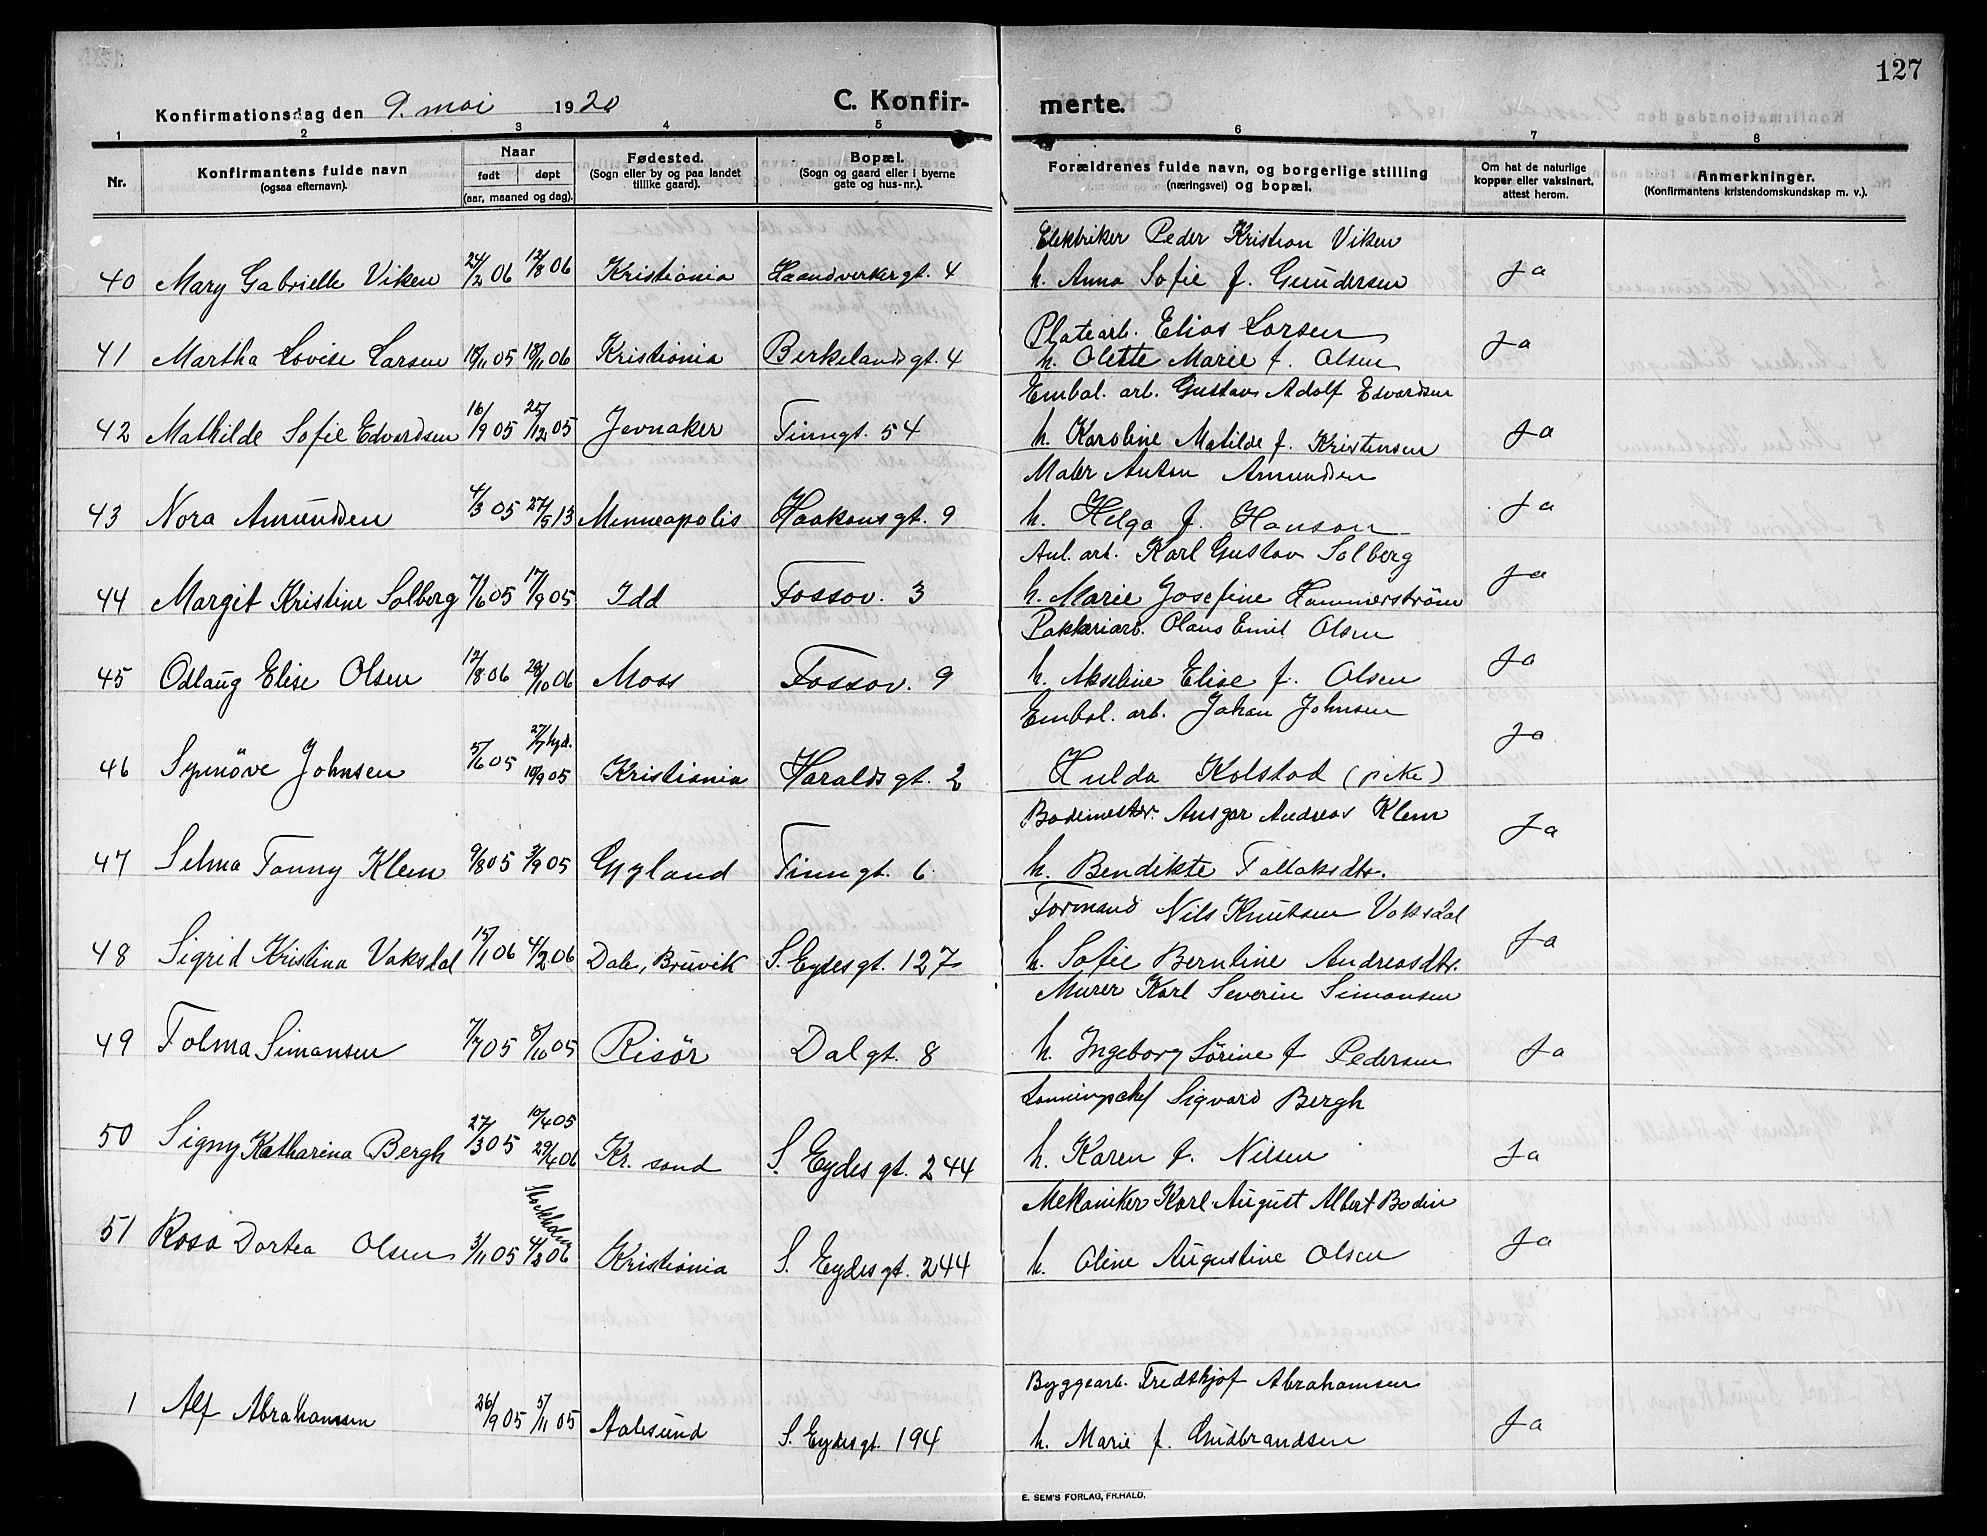 127
Konfirmationsdag den 9. mai 1920 C. Konfir- merte.
1 2 3 4 5 6 7 8
Nr. Konfirmantens fulde navn (ogsaa efternavn). Naar født døpt (aar, maaned og dag). Fødested. (Sogn eller by og paa landet tillike gaard). Bopæl. (Sogn og gaard eller i byerne gate og hus-nr.). Forældrenes fulde navn, og borgerlige stilling (næringsvei) og bopæl. Om hat de naturlige kopper eller vaksinert, attest herom. Anmerkninger. (Konfirmantens kristendomskundskap m. v.).
Elektriker Peder Kristian Viken
40 Mary Gabrielle Viken 24/2 06 12/8 06 Kristiania Haandverkergt. 4 h. Anna Sofie f. Gundersen Ja
Platearb. Elias Larsen
41 Martha Lovise Larsen 18/11 05 18/11 06 Kristiania Birkelandsgt. 4 h. Olette Marie f. Olsen Ja
Embal. arb. Gustav Adolf Edvardsen
42 Mathilde Sofie Edvardsen 16/9 05 25/12 05 Jevnaker Finngt. 54 h. Karoline Matilde f. Kristensen Ja
Maler Anton Amundsen
43 Nora Amundsen 4/3 05 27/5 13 Minneapolis Haakonsgt. 9 h. Helga f. Hanson Ja
Anl. arb. Karl Gustav Solberg
44 Margit Kristine Solberg 7/6 05 17/9 05 Idd Fossov. 3 h. Marie Josefine Hammerström Ja
Pakkeriarb. Olaus Emil Olsen
45 Odlaug Elise Olsen 12/8 06 28/10 06 Moss Fossov. 9 h. Akseline Elise f. Olsen Ja
Embal. arb. Johan Johnsen
27/7 hjd.
46 Synnöve Johnsen 5/6 05 10/9 05 Kristiania Haraldsgt. 2 Hulda Kolstad (pike) Ja
Bademester. Ansgar Andreas Klem
47 Selma Fanny Klem 9/8 05 3/9 05 Gyland Finngt. 6 h. Bendikte Tallaksdtr. Ja
Formand Nils Knutsen Vaksdal
48 Sigrid Kristina Vaksdal 15/1 06 4/2 06 Dale, Bruvik S. Eydesgt. 127 h. Sofie Berntine Andreasdtr. Ja
Murer Karl Severin Simonsen
49 Tolma Simonsen 7/7 05 8/10 05 Risör Dalgt. 8 h. Ingeborg Sörine f Pedersen Ja
10/4 05 Sigvard Bergh
50 Signy Katharina Bergh 27/3 05 29/4 06 Kr. sand S. Eydesgt. 244 h. Karen f. Nilsen Ja
Stockholm Mekaniker Karl August Albert Bodin
51 Rosa Dortea Olsen 3/11 05 4/2 06 Kristiania S. Eydesgt. 244 h. Oline Augustine Olsen Ja
Byggearb. Fredthjof Abrahamsen
1 Alf Abrahamsen 26/9 05 5/11 05 Aalesund S. Eydesgt. 194 h. Marie f. Gudbrandsen Ja
E. SEM'S FORLAG, FR.HALD.